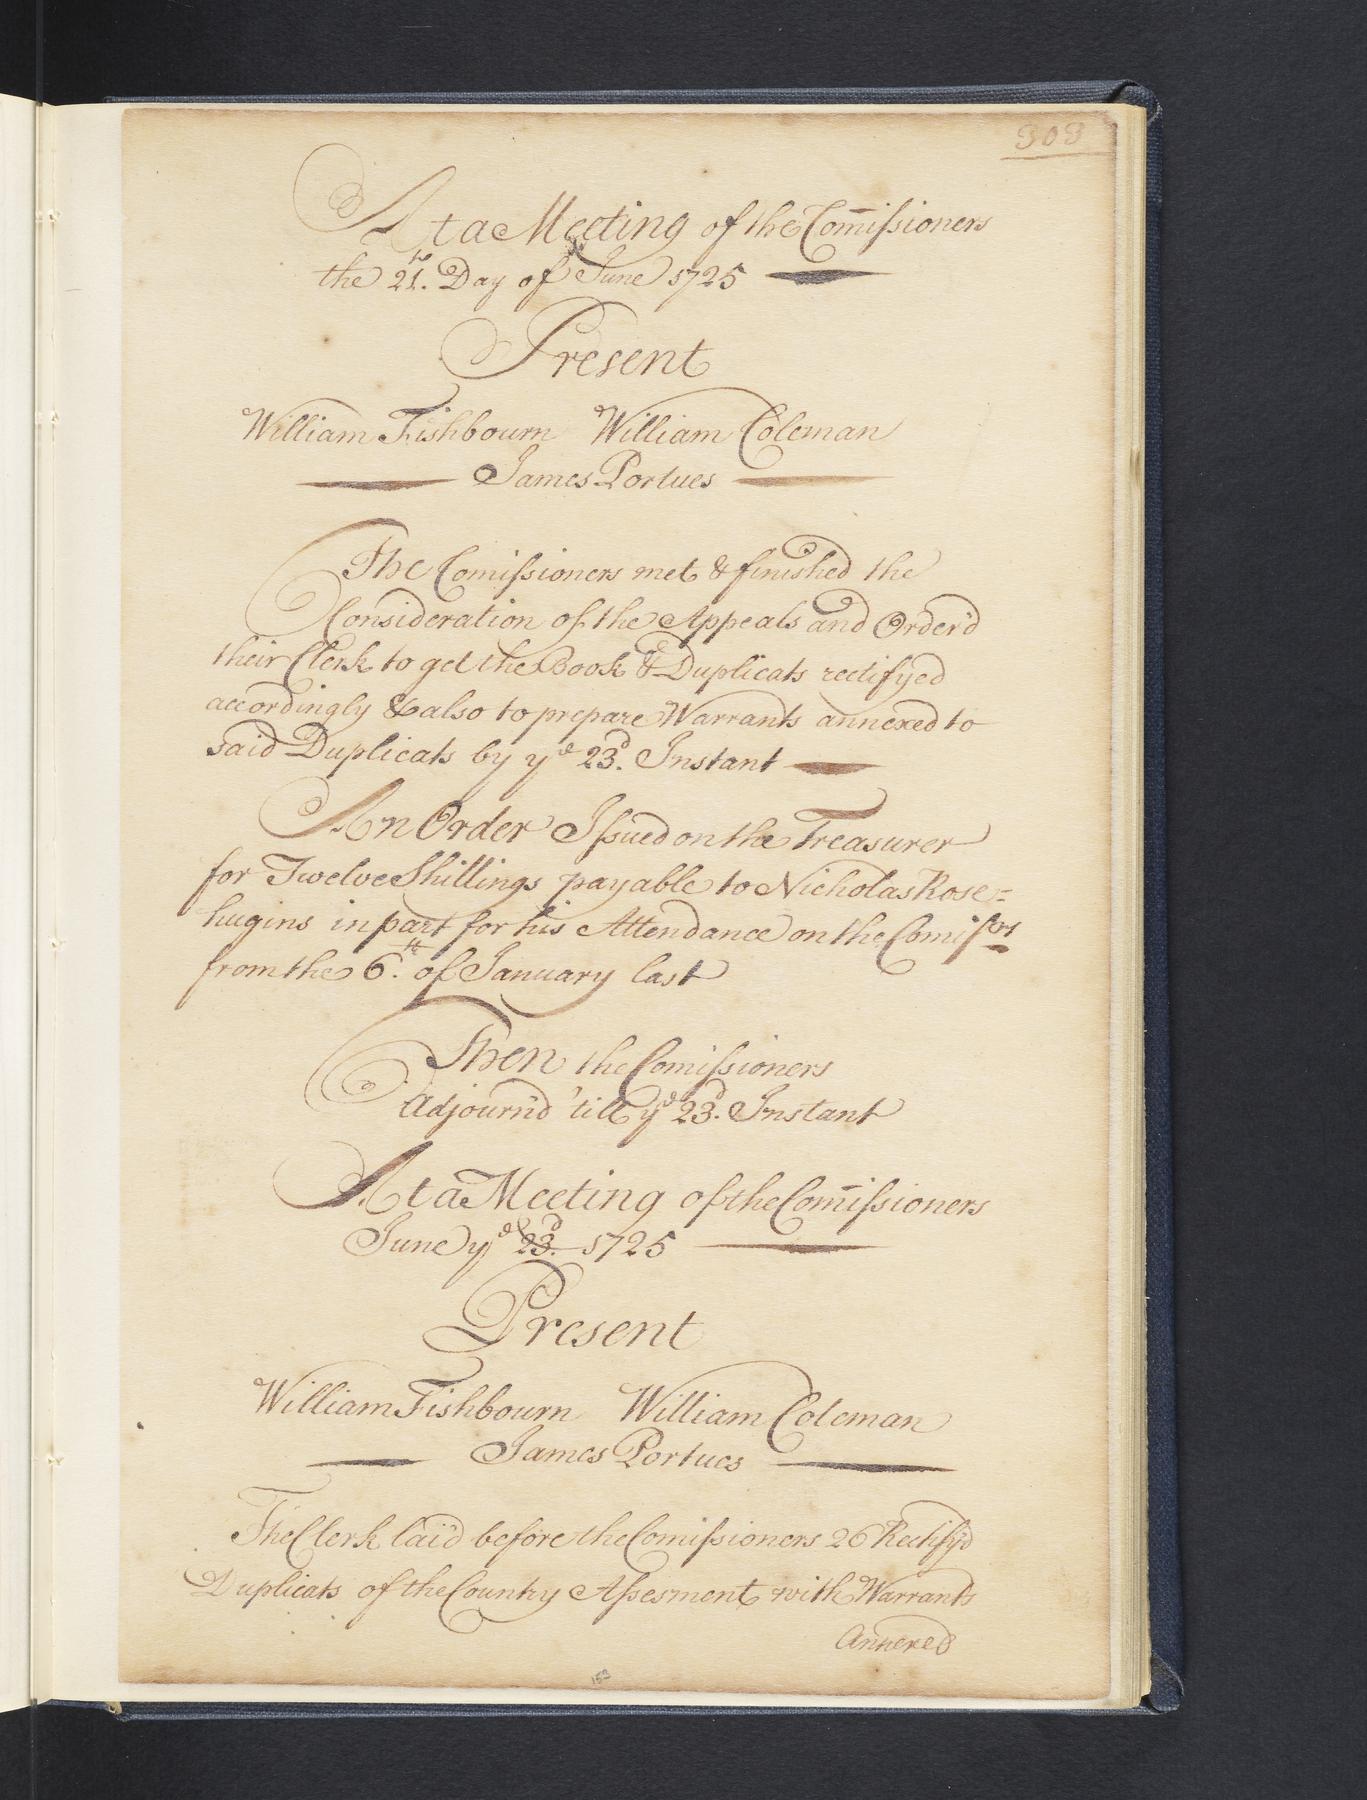 303
At a Meeting of the Com̅issioners
the 21st. Day of June 1725
Present
William Fishbourn William Coleman
James Portues
The Comissioners met & finished the
Consideration of the Appeals and Order'd
their Clerk to get the Book & Duplicats rectifyed
accordingly & also to prepare Warrants annexed to
said Duplicats by ye 23d. Instant
An Order Issued on the Treasurer
for Twelve Shillings payable to Nicholas Rose=
hugins in part for his Attendance on the Comissrs
from the 6th. of January last
Then the Comissioners
Adjourn'd 'till ye 23d. Instant
At a Meeting of the Com̅issioners
June ye 23d. 1725
Present
William Fishbourn William Coleman
James Portues
The Clerk laid before the Comissioners 26 Rectify'd
Duplicats of the Country Assesment with Warrants
Annexed